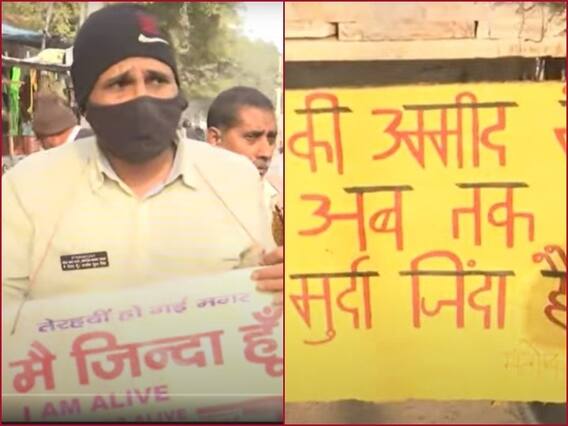 तेरहवीं हो गई मगर
मै जिन्दा हूँ
I AM ALIVE
की उम्मीद
अब तक
मुर्दा जिंदा है